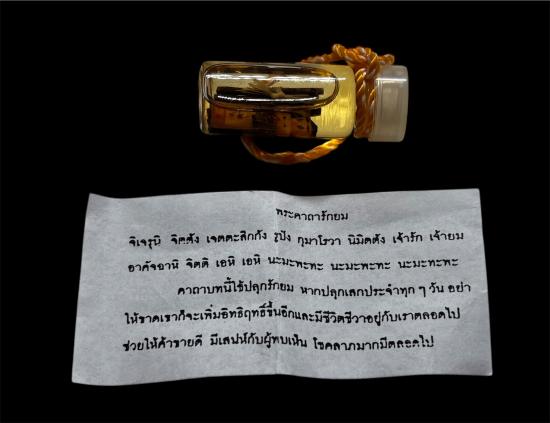 พระคาถารักยม
จิเจรุนิ จิตตัง เจตตะสิกกัง รูปัง กุมาโรวา นิมิตตัง เจ้ารัก เจ้ายม
อาคัจฉาหิ จิตติ เอหิ เอหิ นะมะพะทะ นะมะพะทะ นะมะทะพะ
คาถาบทนี้ใช้ปลุกรักยม หากปลุกเสกประจำทุก ๆ วัน อย่า
ให้ขาดเขาก็จะเพิ่มอิทธิฤทธิ์ขึ้นอีกและมีชีวิตชีวาอยู่กับเราตลอดไป
ช่วยให้ค้าขายดี มีเสน่ห์กับผู้พบเห็น โชคลาภมากมีตลอดไป